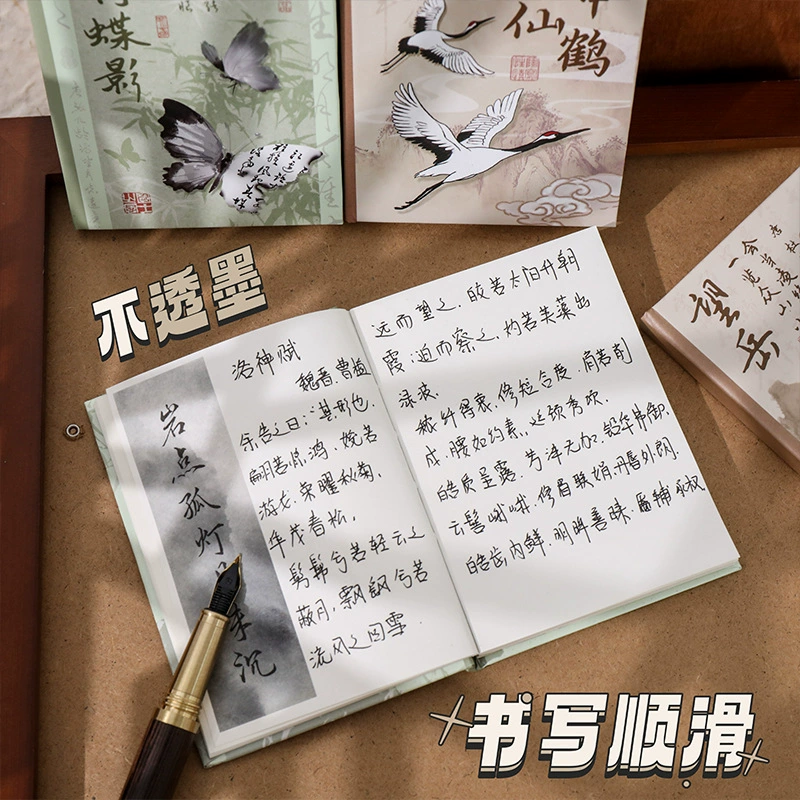 蝶影
仙鹤
望岳
会当凌
一览众山
不透墨
洛神赋
魏晋.曹植
余告之曰:其形也,
翩若惊鸿,婉若
游龙,荣曜秋菊,
华茂春松,
髣髴兮若轻云之
蔽月,飘飖兮若
流风之回雪.
岩点孤灯
沉
远而望之,皎若太阳升朝
霞;迫而察之,灼若芙蕖出
渌波.
秾纤得衷,修短合度.肩若削
成,腰如约素.延颈秀项,
皓质呈露.芳泽无加,铅华弗御.
云髻峨峨,修眉联娟.丹唇外朗,
皓齿内鲜,明眸善睐,靥辅承权
书写顺滑